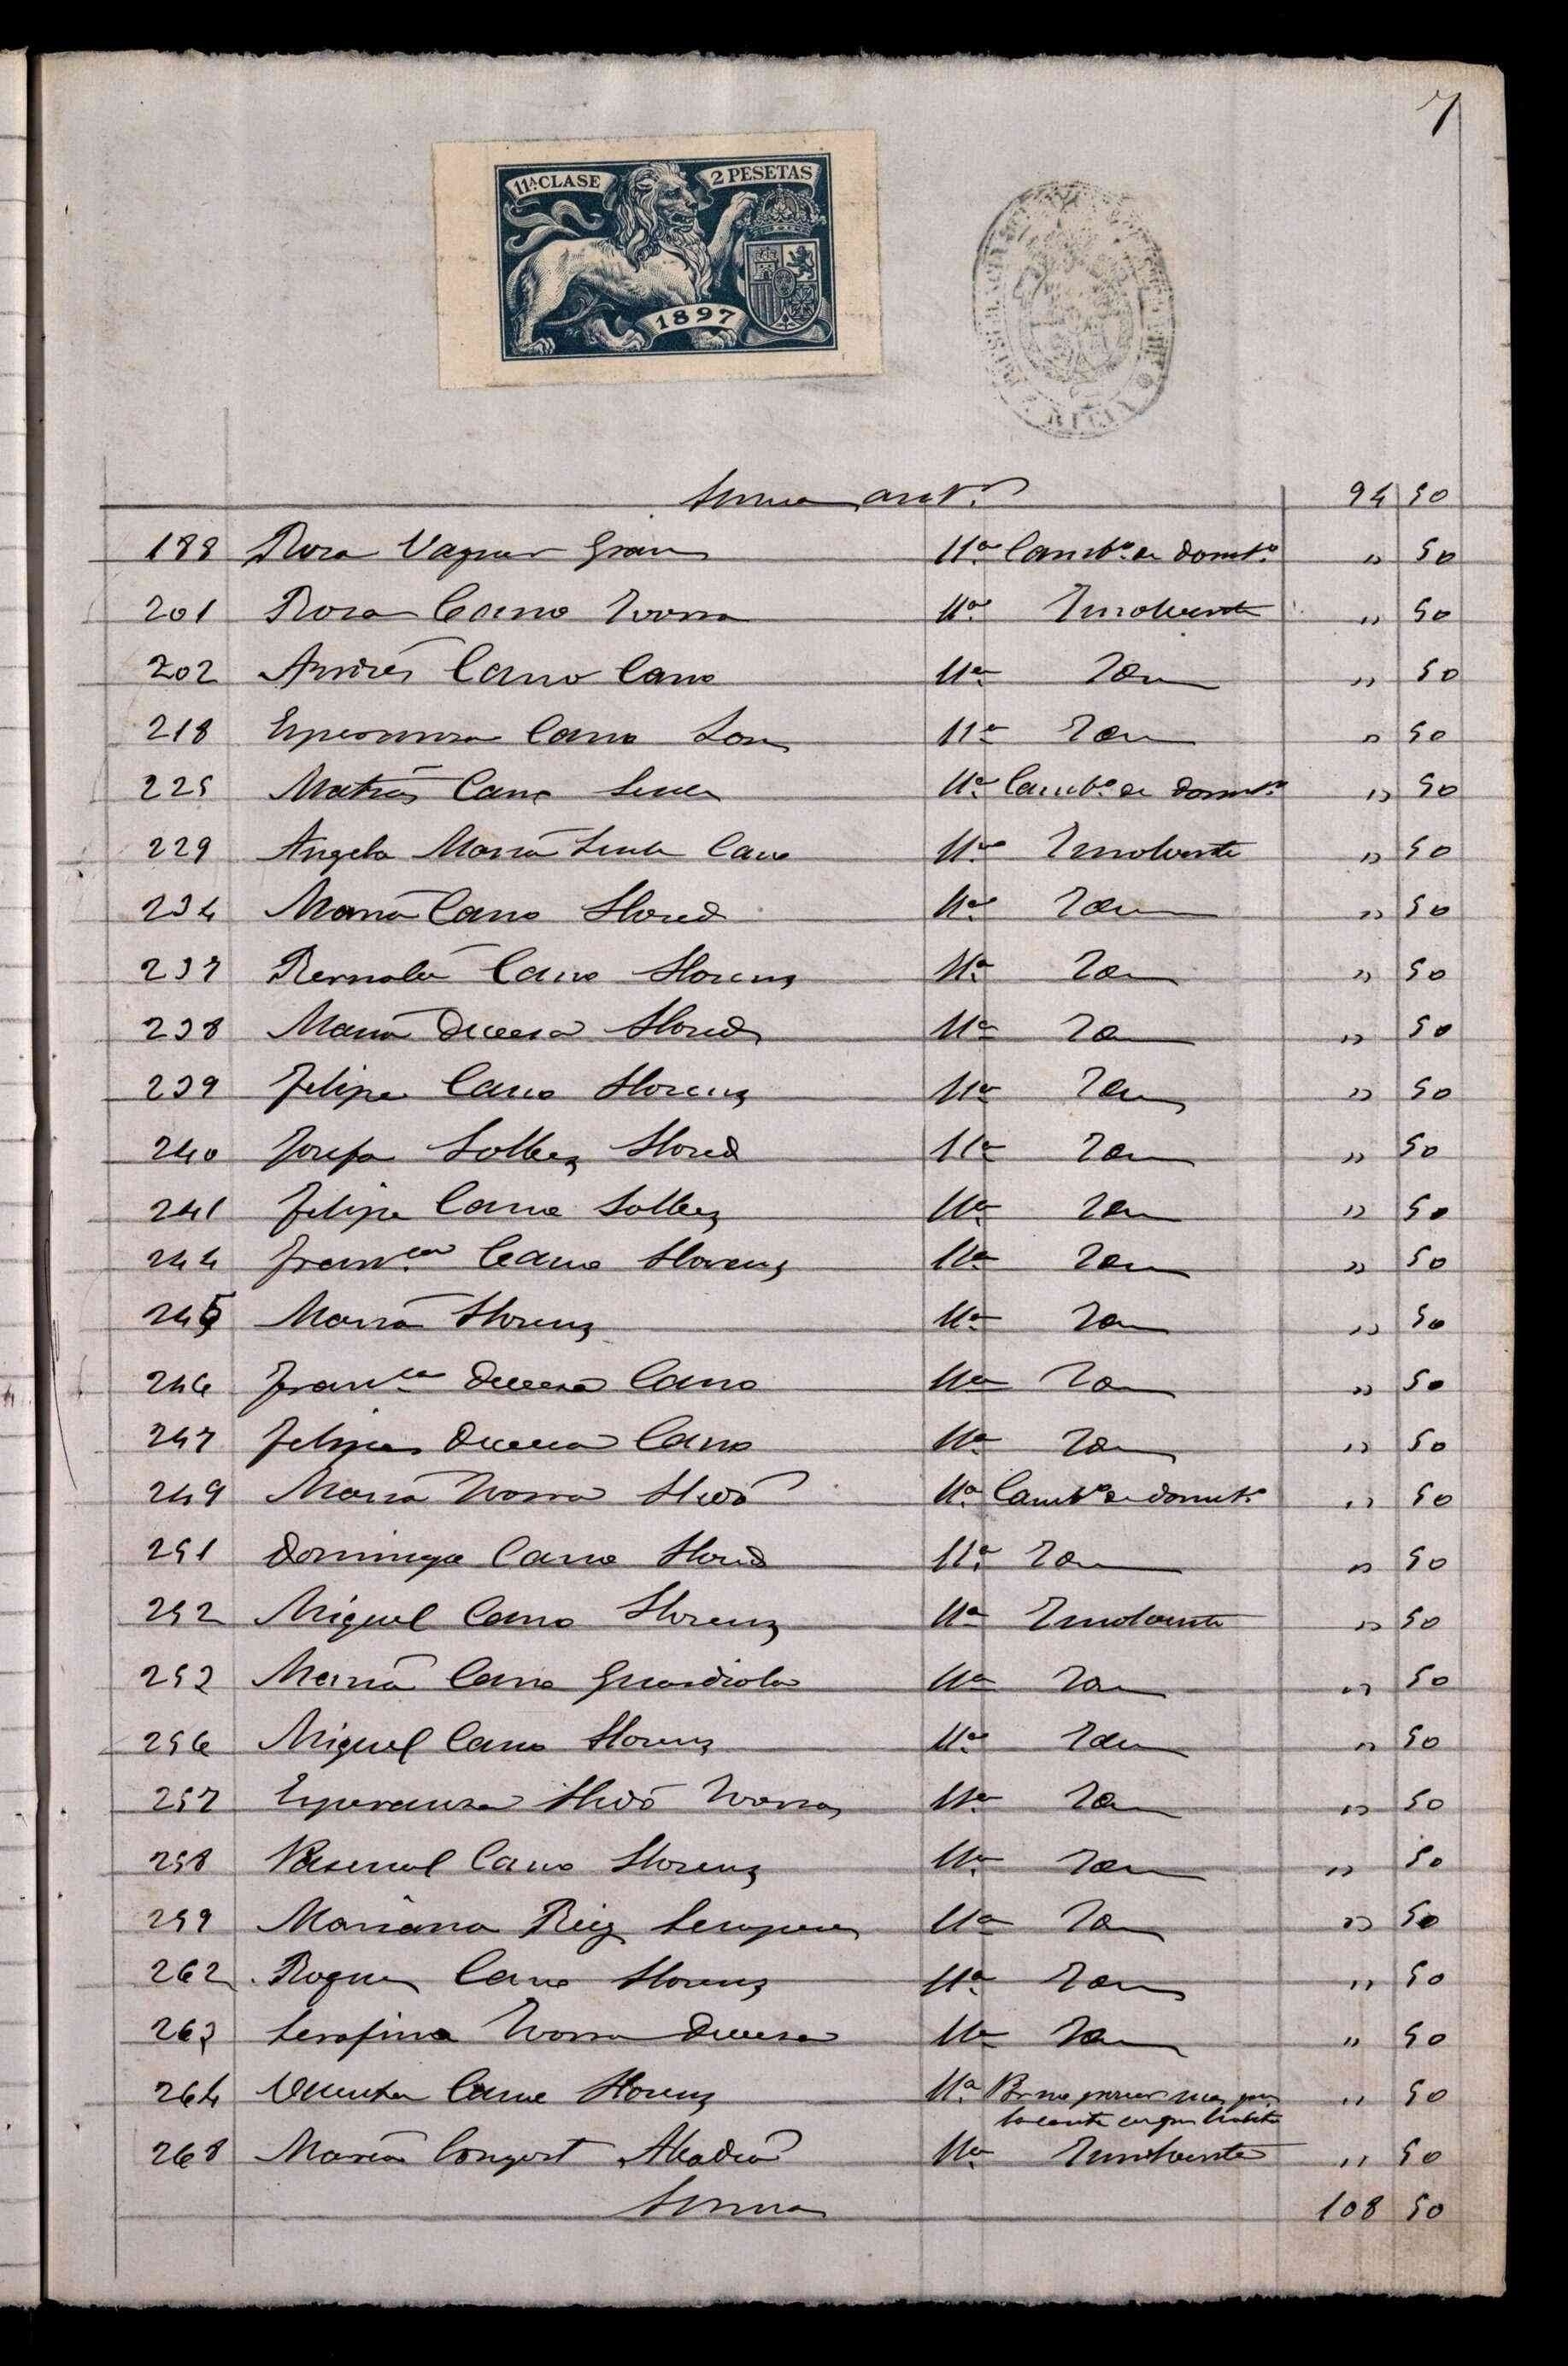 7
11ª CLASE 2 PESETAS
1897
Suma ant.r 94 50
188 Rosa Vaquer Grau 11ª Camb.º de domt.º " 50
201 Rosa Cano Ivorra 11ª Insolvente " 50
202 Andrés Cano Cano 11ª Idem " 50
218 Esperanza Cano 11ª Idem " 50
225 Matías Cano 11ª Camb.º de domt.º " 50
229 Angela María Cano 11ª Insolvente " 50
234 María Cano Lloret 11ª Idem " 50
237 Bernabé Cano Llorens 11ª Idem " 50
238 María Devesa Lloret 11ª Idem " 50
239 Felipe Cano Llorens 11ª Idem " 50
240 Josefa Solbes Lloret 11ª Idem " 50
241 Felipe Cano Solbes 11ª Idem " 50
244 Fran.ca Cano Llorens 11ª Idem " 50
245 María Llorens 11ª Idem " 50
246 Fran.ca Devesa Cano 11ª Idem " 50
247 Felipa Devesa Cano 11ª Idem " 50
249 María Ivorra Lledó 11ª Camb.º de domt.º " 50
251 Dominga Cano Lloret 11ª Idem " 50
252 Miguel Cano Llorens 11ª Insolvente " 50
253 María Cano Guardiola 11ª Idem " 50
256 Miguel Cano Llorens 11ª Idem " 50
257 Esperanza Lledó Ivorra 11ª Idem " 50
258 Pascual Cano Llorens 11ª Idem " 50
259 Mariana Reig Sempere 11ª Idem " 50
262 Roque Cano Llorens 11ª Idem " 50
263 Serafina Ivorra Devesa 11ª Idem " 50
264 Vicenta Cano Llorens 11ª Por no poseer mas que " 50
la casita en que habita
268 María Llongort Abadía 11ª Insolvente " 50
Suma 108 50